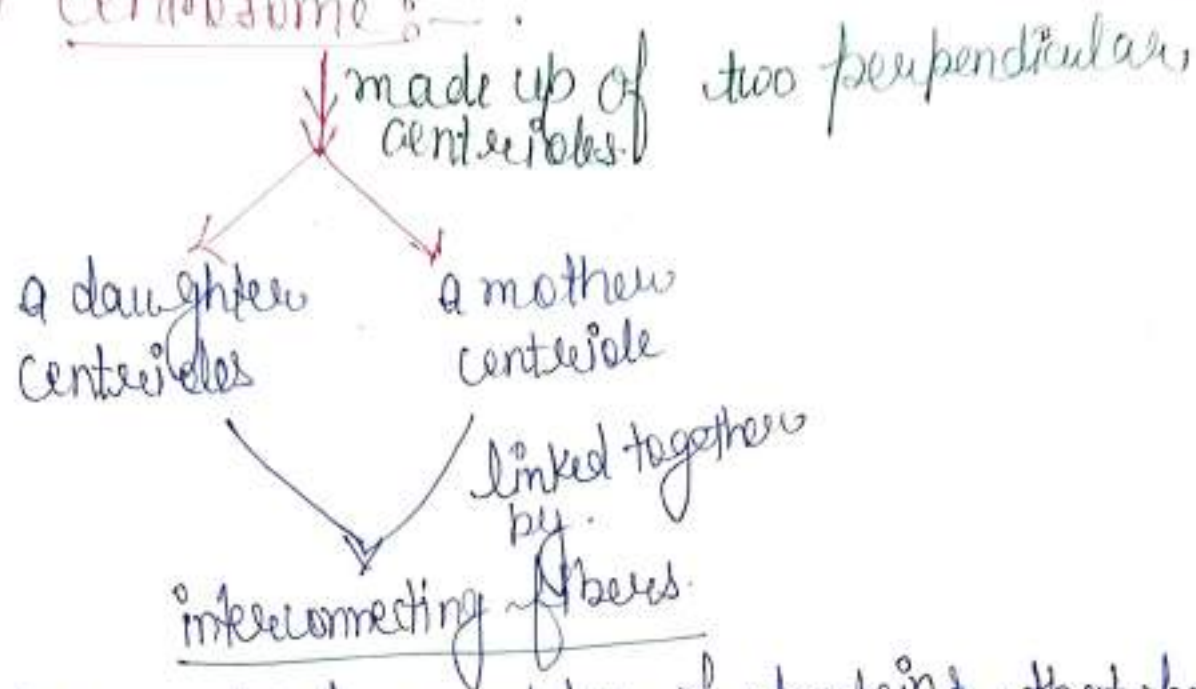 Centrosome :-
made up of two perpendicular,
centrioles.
a daughter
centrioles
a mother
centriole
linked together
by.
interconnecting fibers.
of proteins that